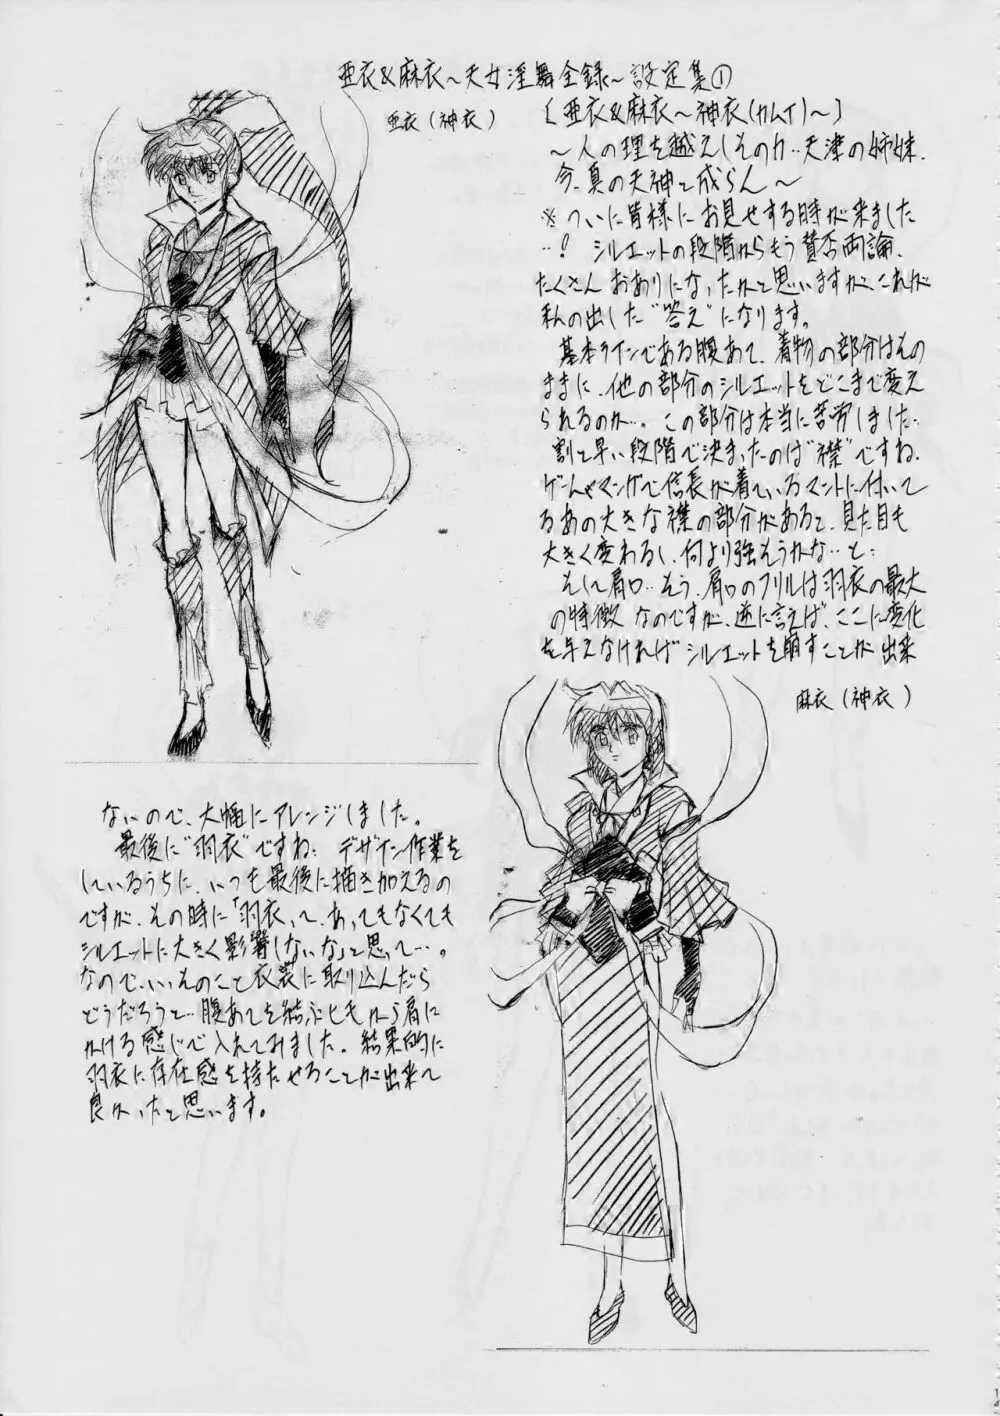 亜衣&麻衣～天女淫舞全録～設定集①
亜衣（神衣）
〔亜衣&麻衣～神衣（カムイ）～〕
～人の理を越えしその力…天津の姉妹、
今、真の天神と成らん～
※ついに皆様にお見せする時が来ました
…！ シルエットの段階からもう賛否両論、
たくさんおありになったかと思いますが、これが
私の出した“答え”になります。
基本ラインである腹あて、着物の部分はその
ままに、他の部分のシルエットをどこまで変え
られるのか…。この部分は本当に苦労しました…
割と早い段階で決まったのは“襟”ですね。
ゲームやマンガで信長が着ているマントに付いて
るあの大きな襟の部分があると、見た目も
大きく変わるし、何より強そうかな…と…
そして肩口…そう、肩口のフリルは羽衣の最大
の特徴なのですが、逆に言えば、ここに変化
を与えなければシルエットを崩すことが出来
麻衣（神衣）
ないので、大幅にアレンジしました。
最後に“羽衣”ですね… デザイン作業を
しているうちに、いつも最後に描き加えるの
ですが、その時に「羽衣って、あってもなくても
シルエットに大きく影響しないな」と思って…。
なので、いいそのこと衣装に取り込んだら
どうだろうと…腹あてを結ぶヒモから肩に
かける感じで入れてみました。結果的に
羽衣に存在感を持たせることが出来て
良かったと思います。